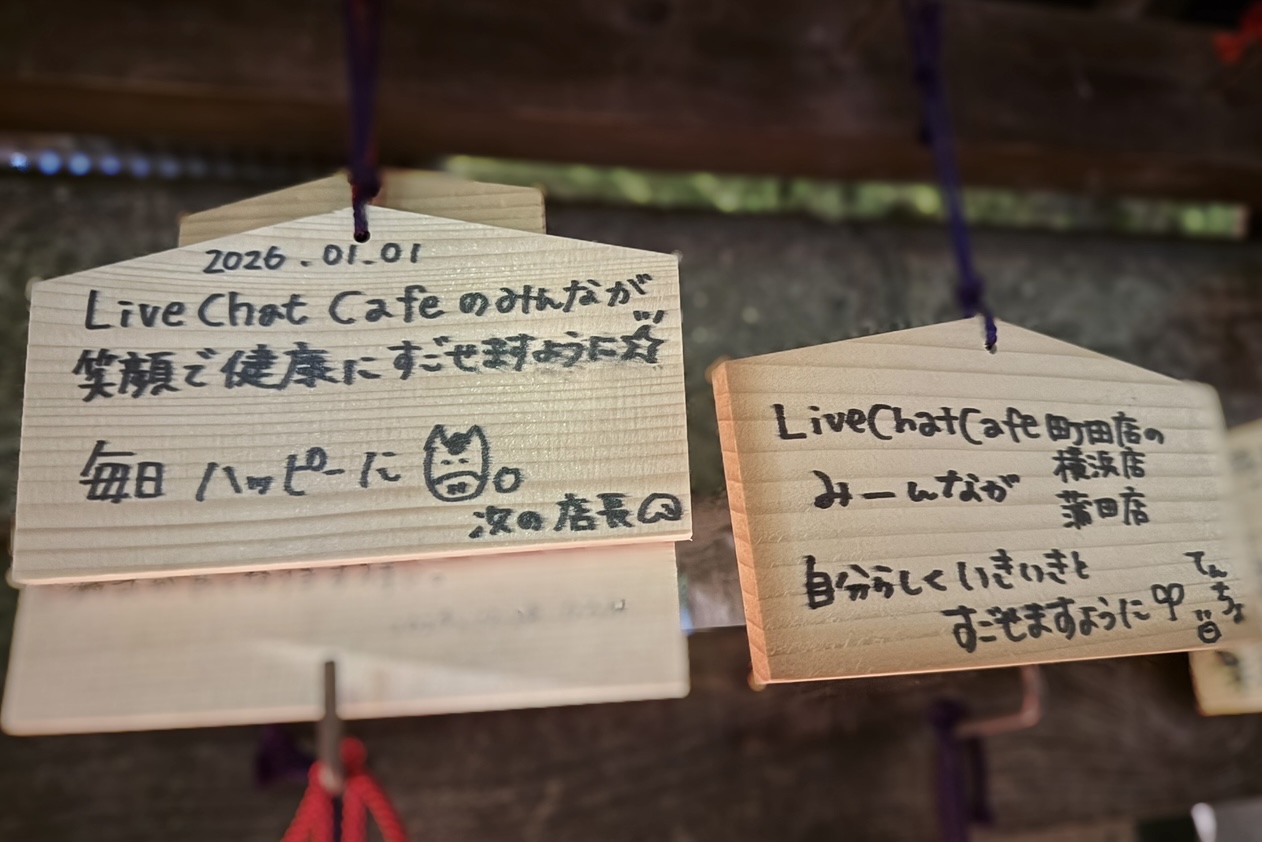 2026.01.01
Live Chat Cafe のみんなが
笑顔で健康にすごせますように☆
毎日 ハッピーに
次の店長
LiveChatCafe 町田店の
横浜店
蒲田店
みーんなが
自分らしくいきいきと
すごせますように
てんちょ